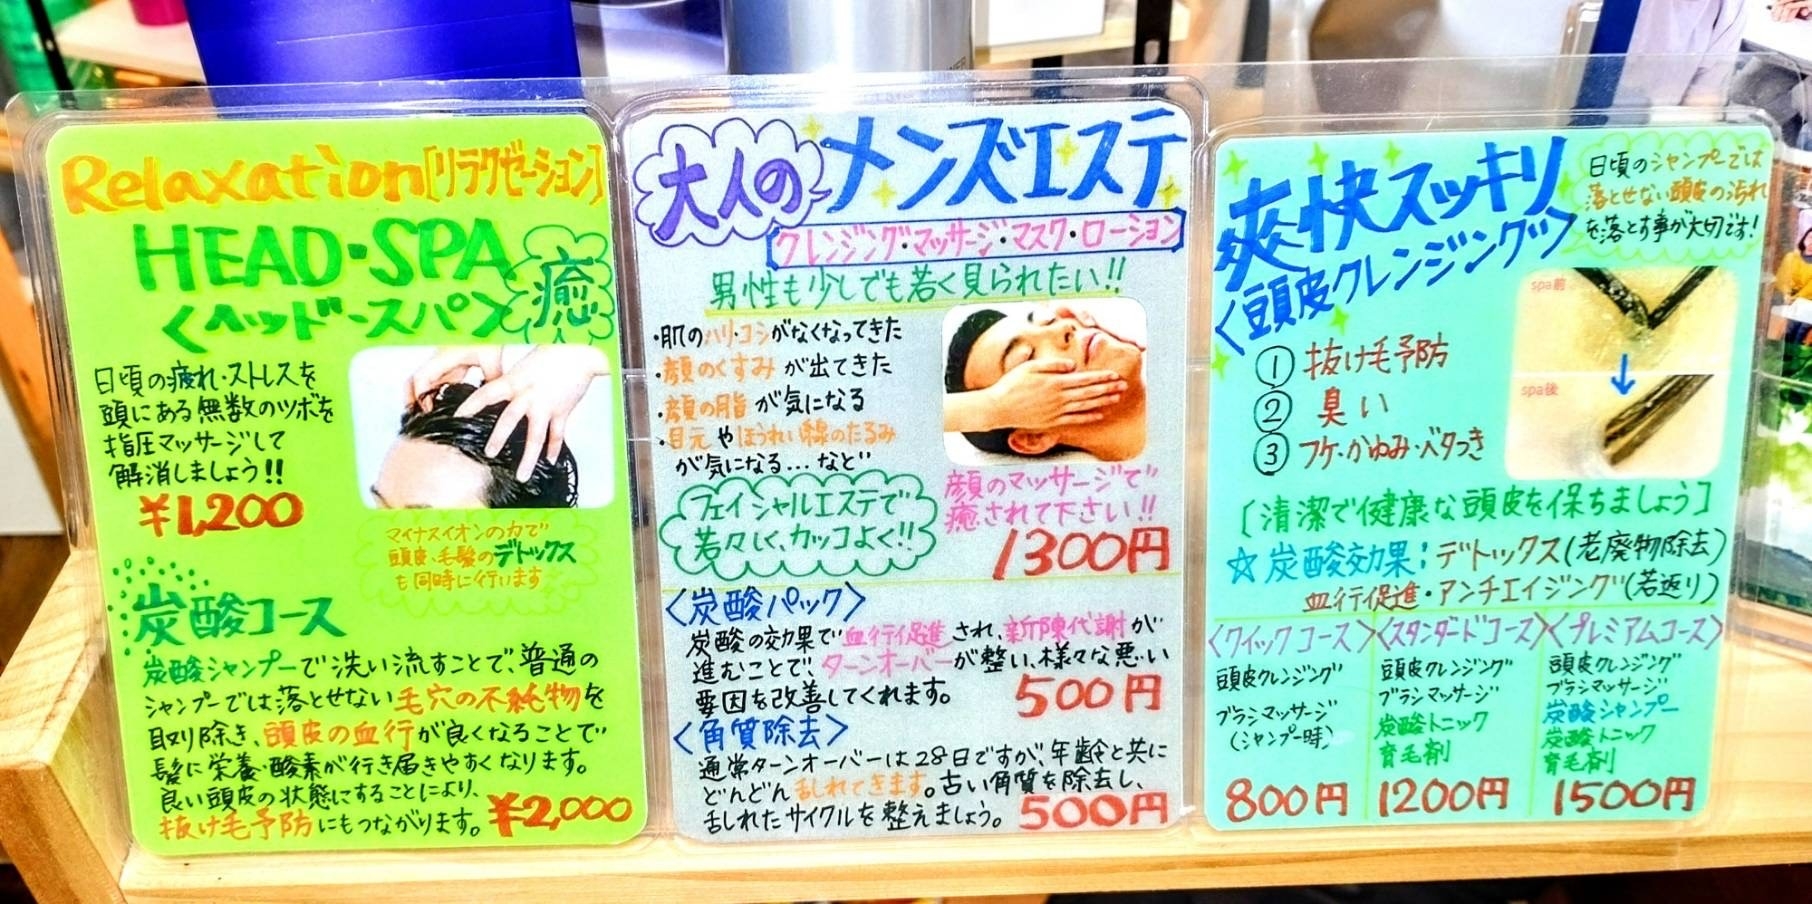 Relaxation[リラクゼーション]
HEAD・SPA
<ヘッド・スパ>
癒
日頃の疲れ・ストレスを
頭にある無数のツボを
指圧マッサージして
解消しましょう!!
¥1,200
マイナスイオンの力で
頭皮、毛髪のデトックス
も同時に行います
炭酸コース
炭酸シャンプーで洗い流すことで、普通の
シャンプーでは落とせない毛穴の不純物を
取り除き、頭皮の血行が良くなることで
髪に栄養・酸素が行き届きやすくなります。
良い頭皮の状態にすることにより、
抜け毛予防にもつながります。
¥2,000
大人の メンズエステ
クレンジング・マッサージ・マスク・ローション
男性も少しでも若く見られたい!!
・肌のハリ・コシがなくなってきた
・顔のくすみが出てきた
・顔の脂が気になる
・目元やほうれい線のたるみ
が気になる...など
フェイシャルエステで
若々しく、カッコよく!!
顔のマッサージで
癒されて下さい!!
1300円
<炭酸パック>
炭酸の効果で血行促進され、新陳代謝が
進むことで、ターンオーバーが整い、様々な悪い
要因を改善してくれます。
500円
<角質除去>
通常ターンオーバーは28日ですが、年齢と共に
どんどん乱れてきます。古い角質を除去し、
乱れたサイクルを整えましょう。
500円
爽快スッキリ
<頭皮クレンジング>
日頃のシャンプーでは
落とせない頭皮の汚れ
を落とす事が大切です!
① 抜け毛予防
② 臭い
③ フケ・かゆみ・ベタつき
spa前
spa後
[清潔で健康な頭皮を保ちましょう]
☆炭酸効果:デトックス(老廃物除去)
血行促進・アンチエイジング(若返り)
<クイックコース>
頭皮クレンジング
ブラシマッサージ
(シャンプー時)
800円
<スタンダードコース>
頭皮クレンジング
ブラシマッサージ
炭酸トニック
育毛剤
1200円
<プレミアムコース>
頭皮クレンジング
ブラシマッサージ
炭酸シャンプー
炭酸トニック
育毛剤
1500円